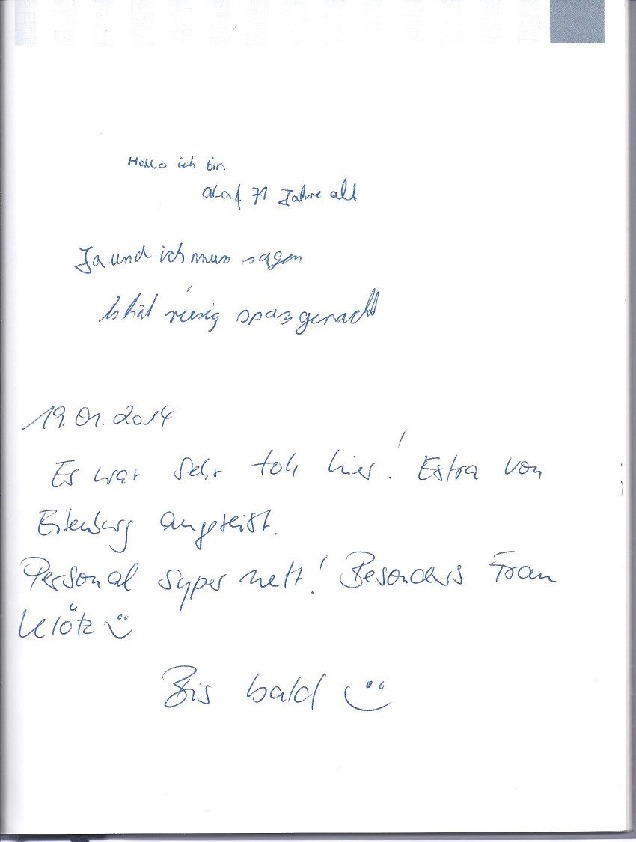 Hallo ich bin
Olaf 71 Jahre alt
Ja und ich muss sagen
es hat riesig spass gemacht
19.01.2014
Es war sehr toll hier! Extra von
Eilenburg angereist.
Personal super nett! Besonders Frau
Klötz
Bis bald